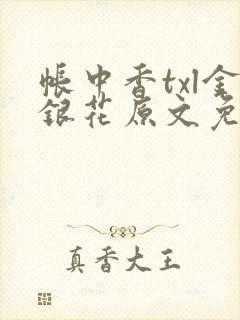 帳中香txl金
銀花原文免
真香大王